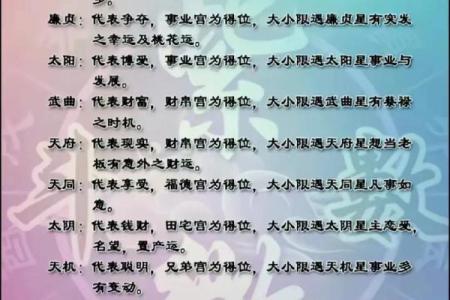 廉贞：代表争夺，事业宫为得位，大小限遇廉贞星有突发
之幸运及桃花运。
太阳：代表博爱，事业宫为得位，大小限遇太阳星事业与
发展。
武曲：代表财富，财帛宫为得位，大小限遇武曲星有葵禄
之时机。
天府：代表现实，财帛宫为得位，大小限遇天府星想当老
板有意外之财运。
天同：代表享受，福德宫为得位，大小限遇天同星凡事如
意。
太阴：代表钱财，田宅宫为得位，大小限遇太阴星主恋爱，
名望，置产运。
天机：代表聪明，兄弟宫为得位，大小限遇天机星事业多
有变动。